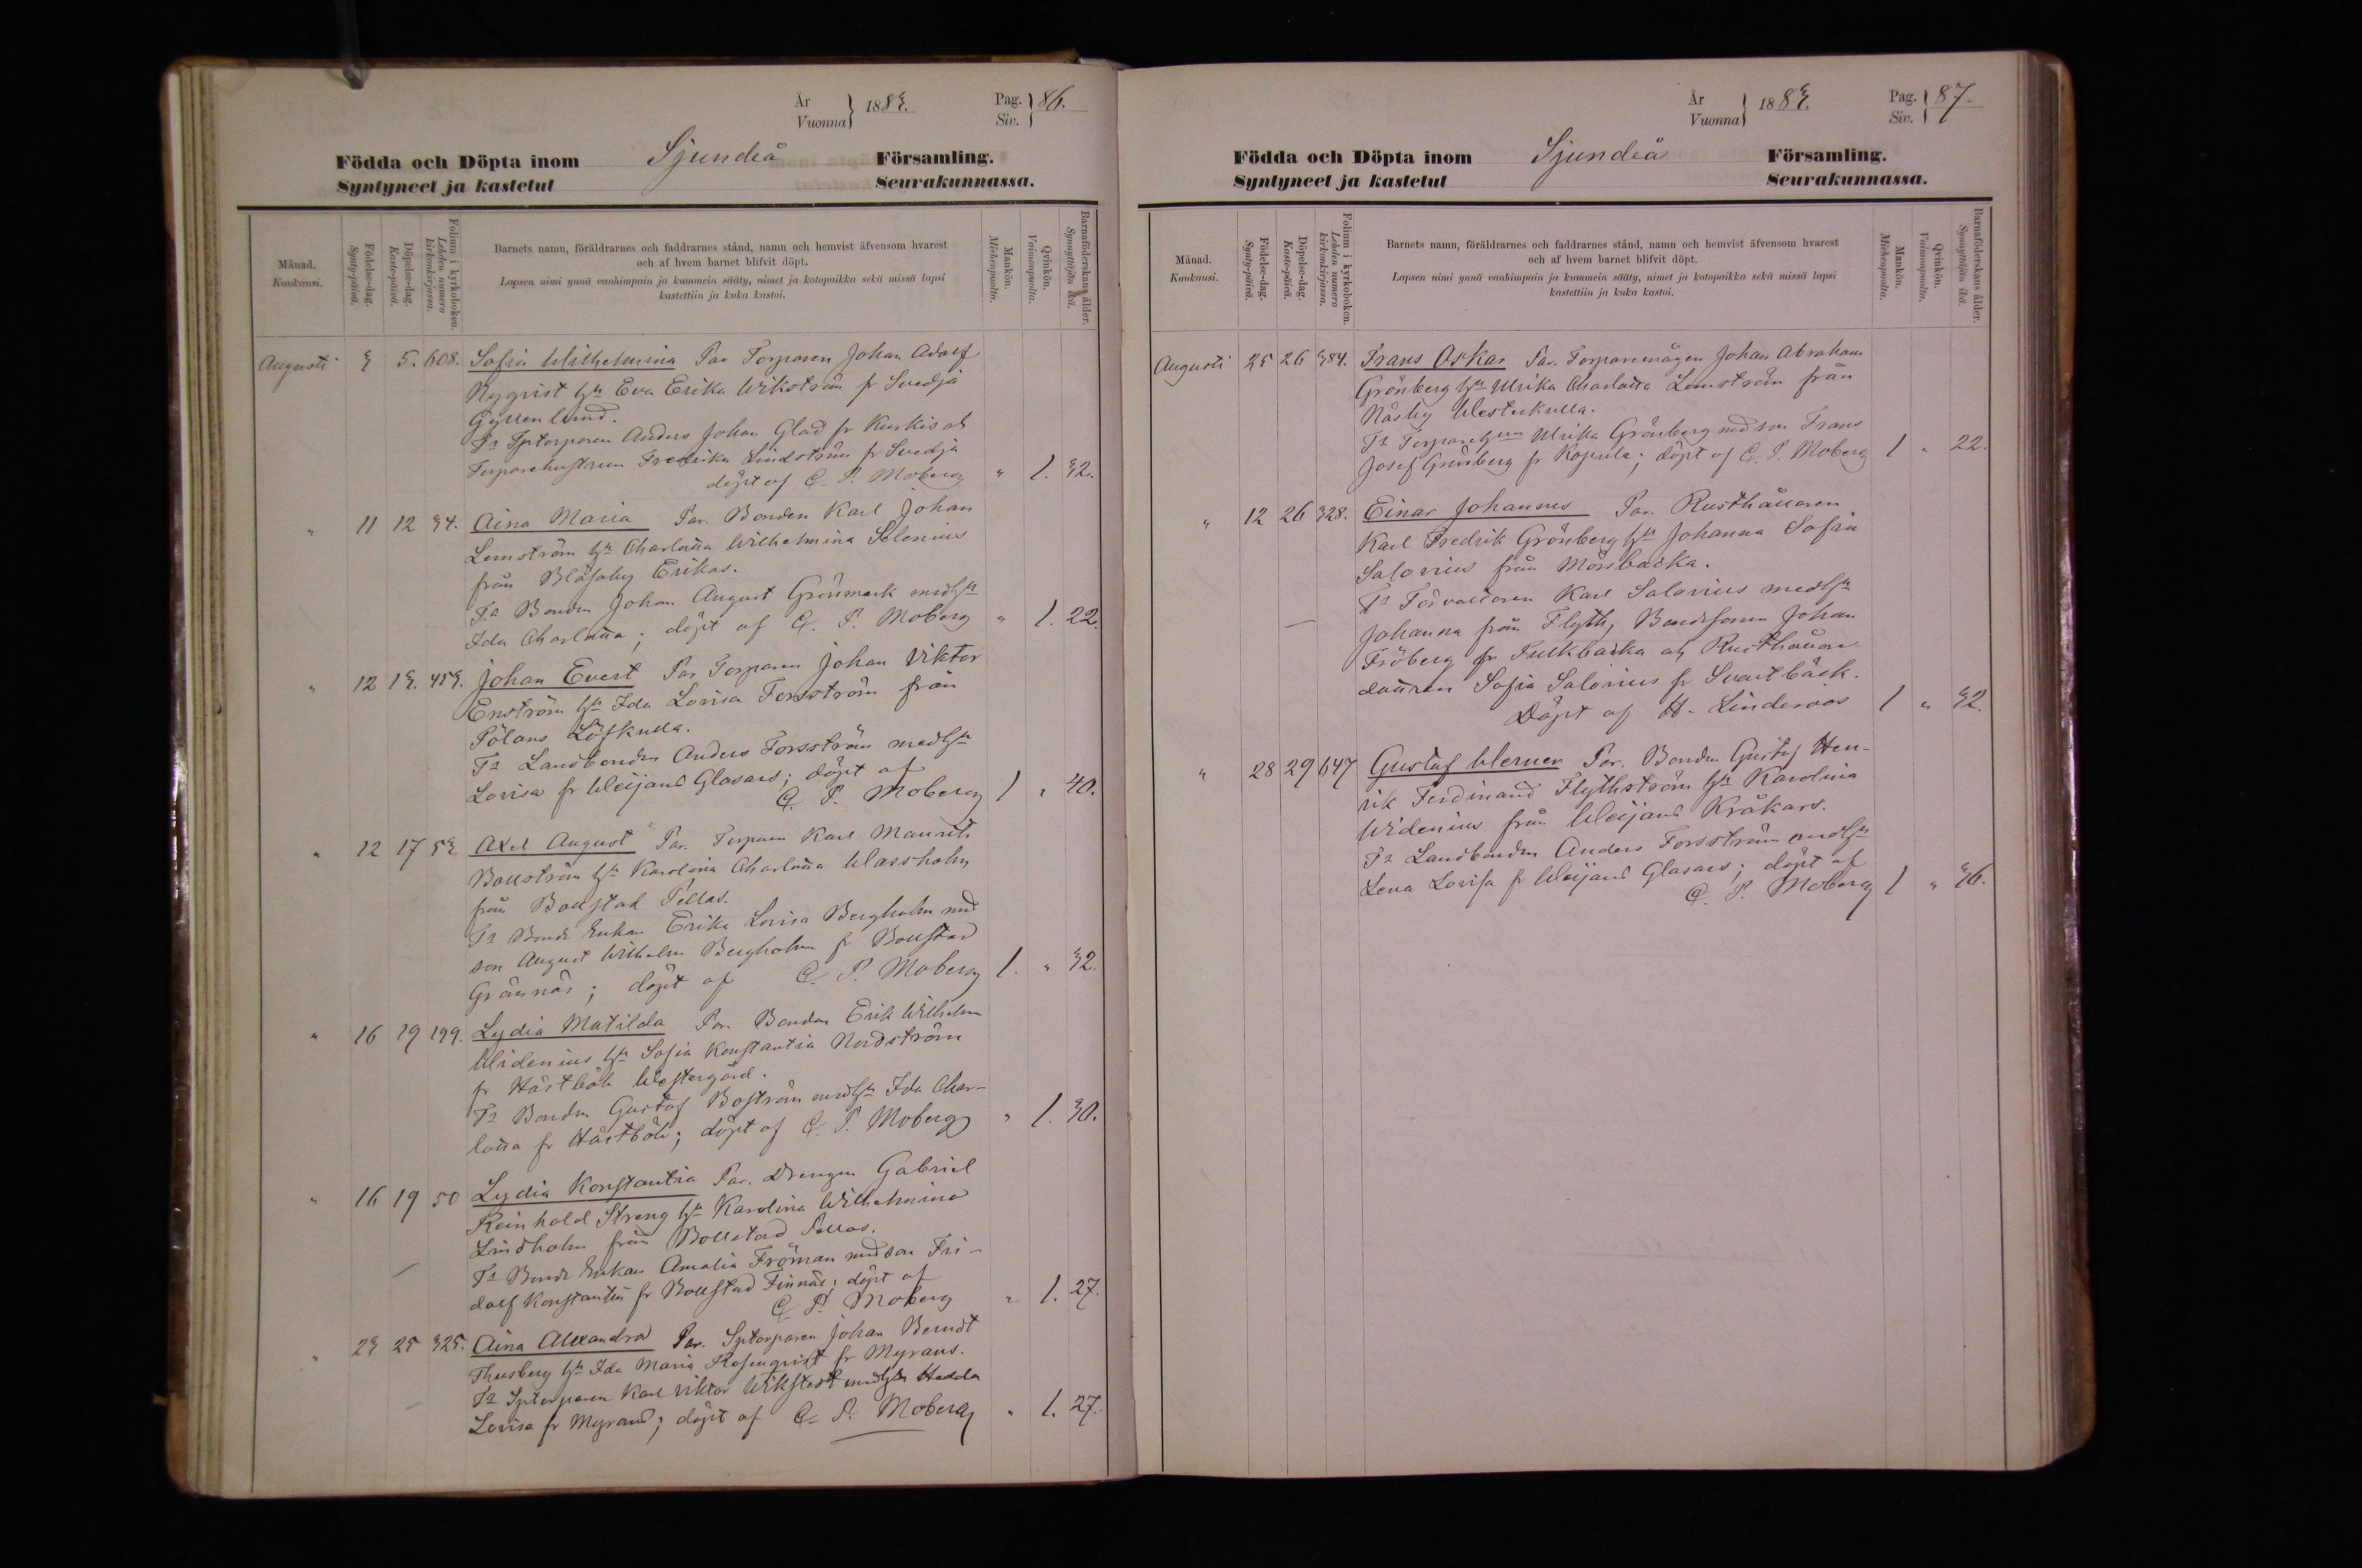 År
Vuonna
1883.
Pag.
Siv.
86.
Födda och Döpta inom Sjundeå Församling.
Syntyneet ja kastetut Seurakunnassa.
Månad.
Kuukausi.
Födelse-dag.
Synty-päivä.
Döpelse-dag.
Kaste-päivä.
Folium i kyrkoboken.
Lehden numero
kirkonkirjassa.
Barnets namn, föräldrarnes och faddrarnes stånd, namn och hemvist äfvensom hvarest
och af hvem barnet blifvit döpt.
Lapsen nimi ynnä vanhimpain ja kummein sääty, nimet ja kotopaikka sekä missä lapsi
kastettiin ja kuka kastoi.
Mankön.
Miehenpuolta.
Qvinkön.
Vaimonpuolta.
Barnaföderskans ålder.
Synnyttäjän ikä.
Augusti 3 5. 608. Sofia Wilhelmina Par Torparen Johan Adolf
Nyqvist hn Eva Erika Wikström fr Svedja
Gyllenlund.
Fr Sptorparen Anders Johan Glad fr Kurkis och
Torparehustrun Fredrika Lindström fr Svedja
döpt af C. P. Moberg " 1. 32.
" 11 12 34. Aina Maria Par. Bonden Karl Johan
Lemström hn Charlotta Wilhelmina Selenius
från Blåfaby Erikas.
Fr Bonden Johan August Grönmark med hn
Ida Charlotta; döpt af C. P. Moberg " 1. 22.
" 12 13. 453. Johan Evert Par Torparen Johan Viktor
Enström hn Ida Lovisa Forsström från
Pölans Löfkulla.
Fr Landbonden Anders Forsström med hn
Lovisa fr Weijans Glasars; döpt af
C. P. Moberg 1 " 40.
" 12 17 53. Axel August Par. Torparen Karl Maurits
Bollström hn Karolina Charlotta Wassholm
från Bollstad Pellas.
Fr Bonde Enkan Erika Lovisa Bergholm med
son August Wilhelm Bergholm fr Bollstad
Grännäs; döpt af C. P. Moberg 1. " 32.
" 16 19 199. Lydia Matilda Par. Bonden Erik Wilhelm
Widenius hn Sofia Konstantia Nordström
fr Hästböle Westergård.
Fr Bonden Gustaf Boström med hn Ida Char-
lotta fr Hästböle; döpt af C. P. Moberg " 1. 30.
" 16 19 50 Lydia Konstantia Par. Drengen Gabriel
Reinhold Streng hn Karolina Wilhelmina
Lindholm från Bollstad Pellas.
Fr Bonde Enkan Amalia Fröman med son Fri-
dolf Konstantin fr Bollstad Finnäs; döpt af
C. P. Moberg " 1. 27.
" 23 25 325. Aina Alexandra Par. Sptorparen Johan Berndt
Thusberg hn Ida Maria Rosenqvist fr Myrans.
Fr Sptorparen Karl Viktor Wikstedt med hn Hedda
Lovisa fr Myrans; döpt af C. P. Moberg " 1. 27.
År
Vuonna
1883.
Pag.
Siv.
87.
Födda och Döpta inom Sjundeå Församling.
Syntyneet ja kastetut Seurakunnassa.
Månad.
Kuukausi.
Födelse-dag.
Synty-päivä.
Döpelse-dag.
Kaste-päivä.
Folium i kyrkoboken.
Lehden numero
kirkonkirjassa.
Barnets namn, föräldrarnes och faddrarnes stånd, namn och hemvist äfvensom hvarest
och af hvem barnet blifvit döpt.
Lapsen nimi ynnä vanhimpain ja kummein sääty, nimet ja kotopaikka sekä missä lapsi
kastettiin ja kuka kastoi.
Mankön.
Miehenpuolta.
Qvinkön.
Vaimonpuolta.
Barnaföderskans ålder.
Synnyttäjän ikä.
Augusti 25 26 384. Frans Oskar Par. Torparemågen Johan Abraham
Grönberg hn Ulrika Charlotta Lemström från
Näsby Westerkulla.
Fr Torparehun Ulrika Grönberg med son Frans
Josef Grönberg fr Kopula; döpt af C. P. Moberg 1 " 22.
" 12 26 328. Einar Johannes Par. Rusthållaren
Karl Fredrik Grönberg hn Johanna Sofia
Salovius från Mörsbacka.
Fr Förvaltaren Karl Salovius med hn
Johanna från Flyth, Bondesonen Johan
Fröberg fr Purkbacka och Rusthållare
dottren Sofia Salovius fr Svartbäck.
Döpt af H. Linderoos 1 " 32.
" 28 29 647 Gustaf Werner Par. Bonden Gustaf Hen-
rik Ferdinand Flythström hn Karolina
Widenius från Weijans Kråkars.
Fr Landbonden Anders Forsström med hn
Lena Lovisa fr Weijans Glasars; döpt af
C. P. Moberg 1 " 36.